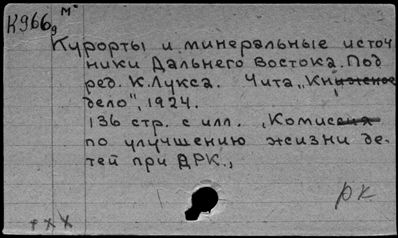 К966₉ М°
Курорты и минеральные источ
ники Дальнего Востока. Под
ред. К. Лукса. Чита, „Книжное
дело", 1924.
136 стр. с илл. „Комиссия
по улучшению жизни де-
тей при ДРК.„
рк
+ х х